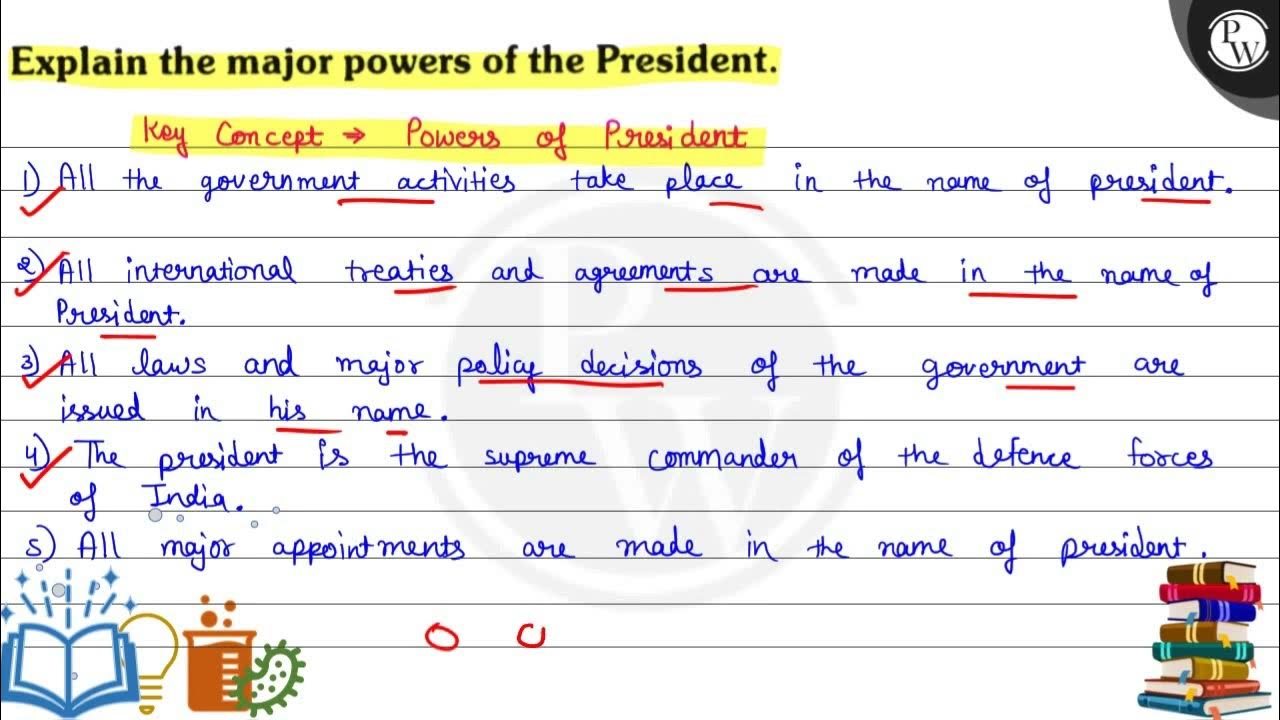 PW
Explain the major powers of the President.
Key Concept → Powers of President
1) All the government activities take place in the name of president.
2) All international treaties and agreements are made in the name of
President.
3) All laws and major policy decisions of the government are
issued in his name.
4) The president is the supreme commander of the defence forces
of India.
5) All major appointments are made in the name of president.